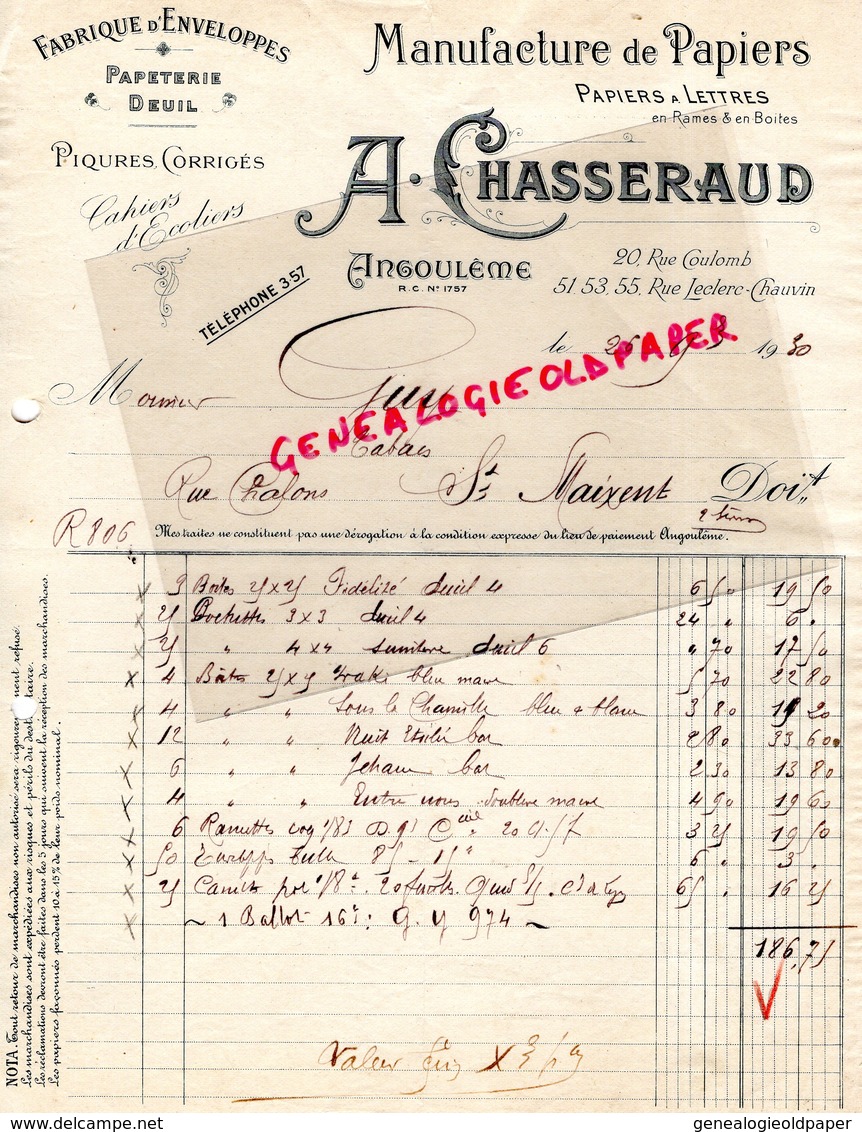 FABRIQUE D'ENVELOPPES
PAPETERIE
DEUIL
PIQURES, CORRIGÉS
Cahiers
d'Ecoliers
Manufacture de Papiers
PAPIERS A LETTRES
en Rames & en Boites
A. CHASSERAUD
ANGOULÊME
R.C. Nº 1757
20, Rue Coulomb
51, 53, 55, Rue Leclerc-Chauvin
TÉLÉPHONE 3-57
le 26 1930
Monsieur Guy
GENEALOGIEOLDPAPER
Tabacs
Rue Chalons St Maixent Doit
R 806
Mes traites ne constituent pas une dérogation à la condition expresse du lieu de paiement Angoulême.
3 Boites Fidélité deuil 4 6 50 19 50
25 Pochettes 3 x 3 deuil 4 24 " 6 .
25 " 4 x 4 deuil 6 " 70 17 50
4 Boites bleu mauve 5 70 22 80
4 " " Sous la Charmille bleu & blanc 3 80 15 20
12 " " Nuit Etoilée 2 80 33 60
6 " " 2 30 13 80
4 " " Entre nous doublure mauve 4 90 19 60
6 Ramettes 3 25 19 50
50 6 . 3 .
25 65 . 16 25
~ 1 Ballot 974 ~
186,75
Valeur
NOTA. Tout retour de marchandises non autorisé sera rigoureusement refusé.
Les marchandises sont expédiées aux risques et périls du destinataire.
Les réclamations devront être faites dans les 5 jours qui suivent la réception des marchandises.
Les papiers façonnés perdent 10 à 15% de leur poids nominal.
www.delcampe.net
genealogieoldpaper